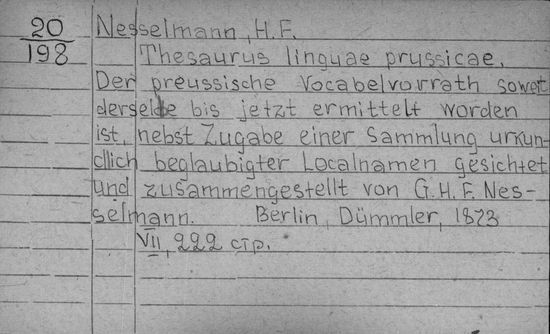 20
198
Nesselmann, H.F.
Thesaurus linguae prussicae.
Der preussische Vocabelvorrath soweit
derselbe bis jetzt ermittelt worden
ist, nebst Zugabe einer Sammlung urkun-
dlich beglaubigter Localnamen gesichtet
und zusammengestellt von G.H.F. Nes-
selmann. Berlin, Dümmler, 1873
VII, 222 стр.